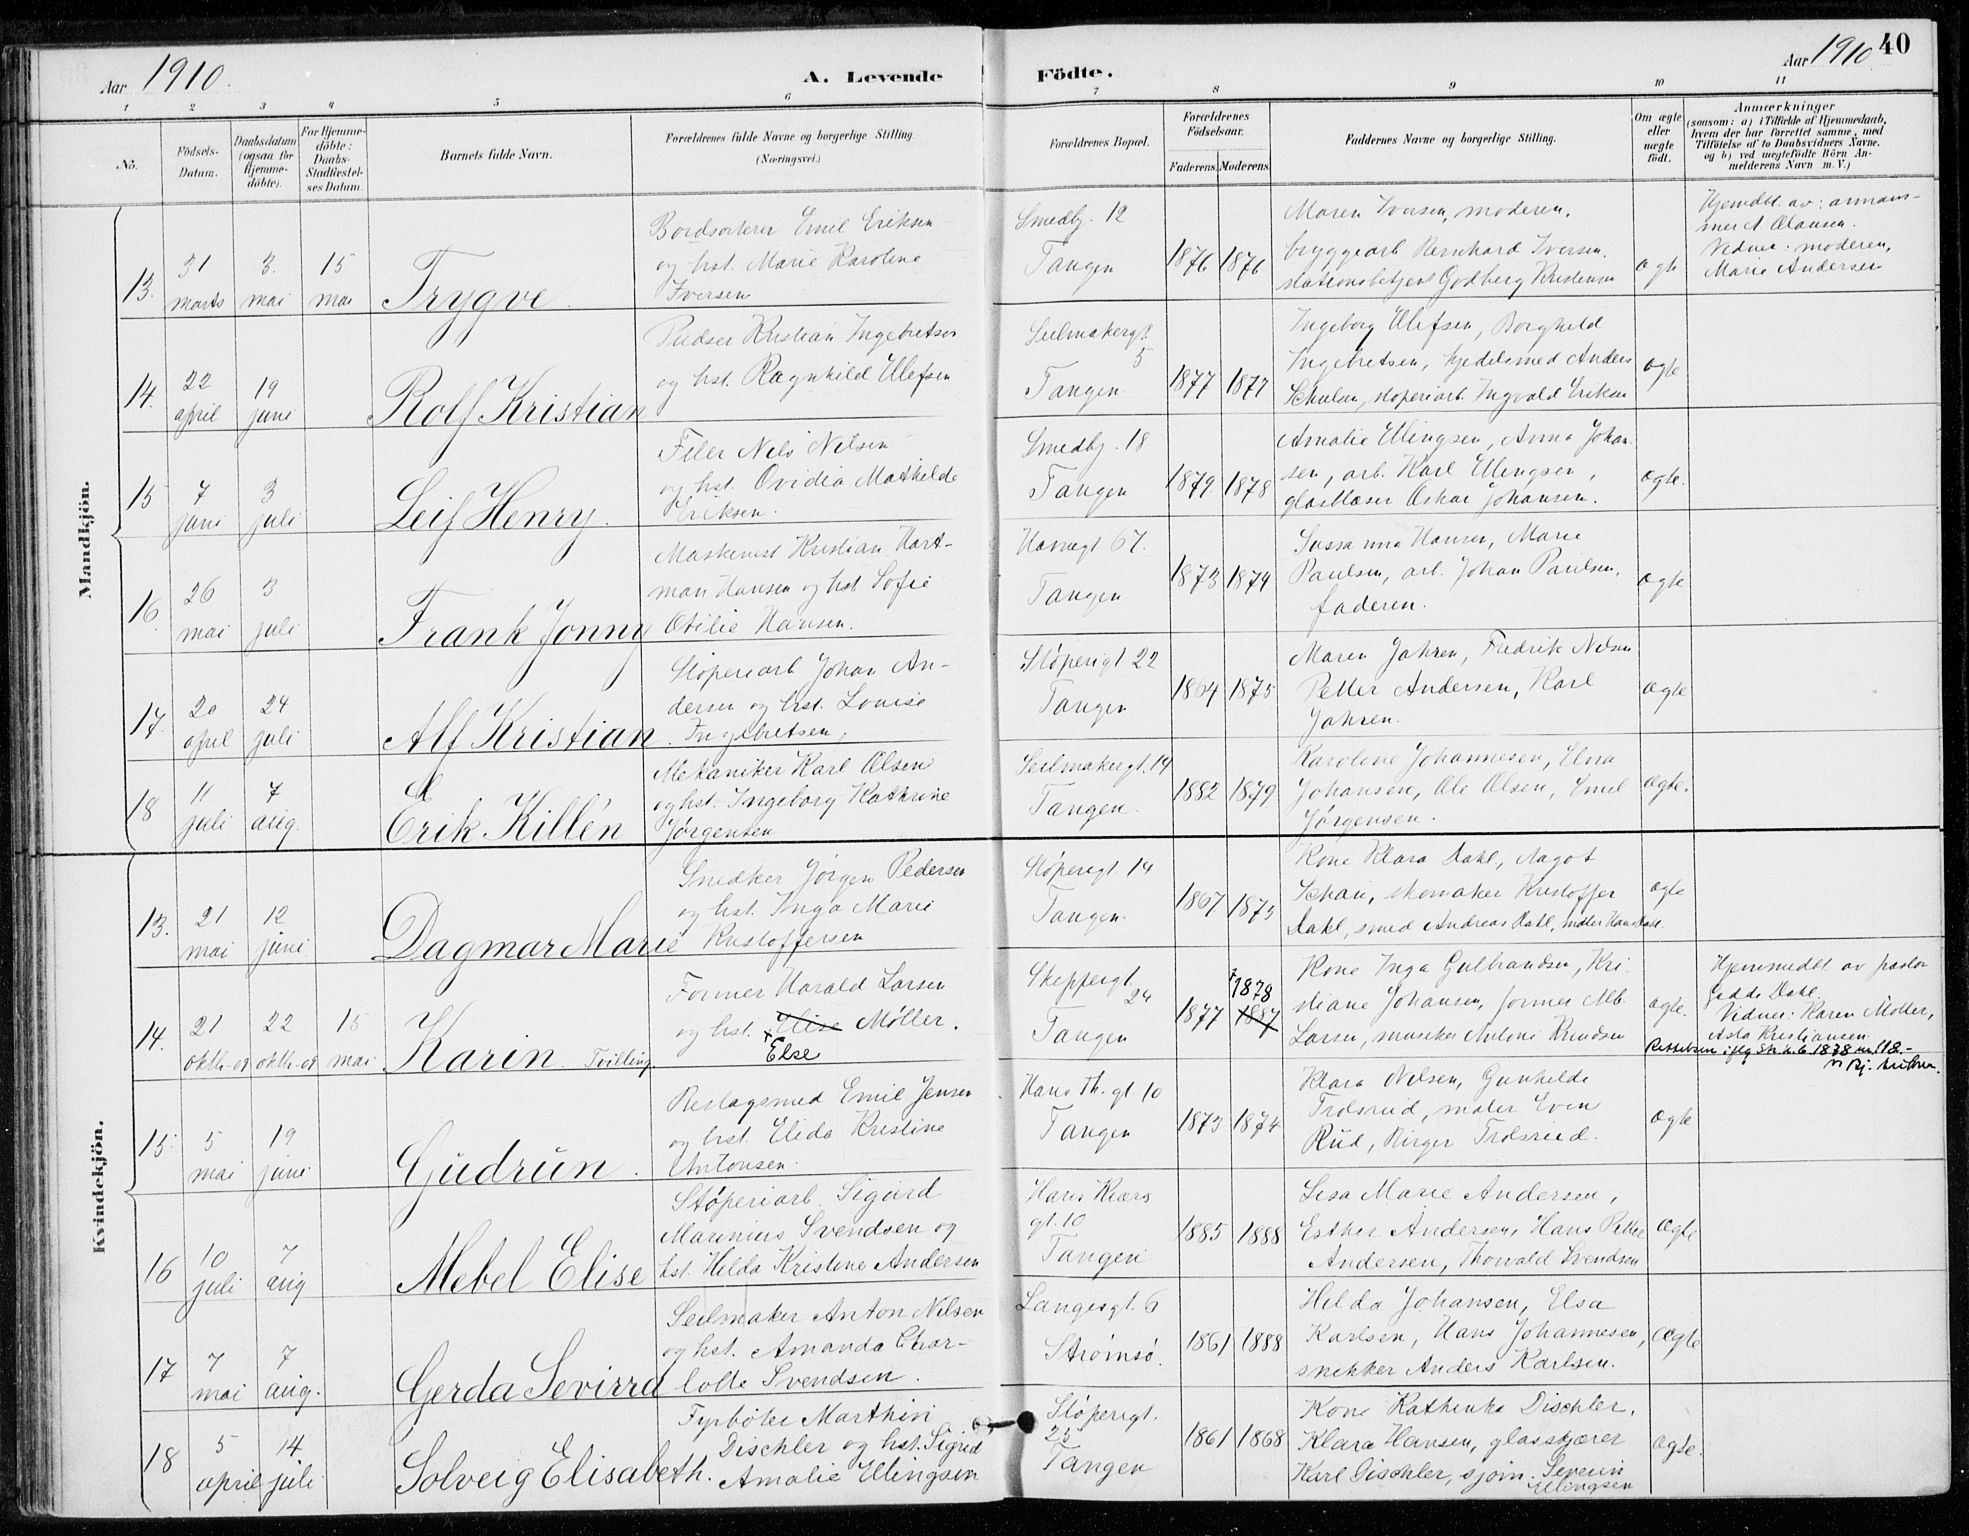 Aar 1910.
A. Levende Födte.
Aar 1910 40
1 2 3 4 5 6 7 8 9 10 11
No.
Födsels-Datum.
Daabsdatum (ogsaa for Hjemme-döbte).
For Hjemme-döbte: Daabs-Stadfæstel-ses Datum.
Barnets fulde Navn.
Forældrenes fulde Navne og borgerlige Stilling. (Næringsvei.)
Forældrenes Bopæl.
Forældrenes Födselsaar.
Faderens. Moderens.
Faddernes Navne og borgerlige Stilling.
Om ægte eller uægte födt.
Anmærkninger
(saasom: a) i Tilfælde af Hjemmedaab,
hvem der har forrettet samme, med
Tilföielse af to Daabsvidners Navne.
og b) ved uægtefödte Börn An-
melderens Navn m. V.)
Mandkjön.
13. 31 marts 3. mai 15 mai Trygve
Bordsorterer Emil Eriksen
og hst. Marie Karoline
Iversen
Smedbj. 12
Tangen
1876 1876
Maren Iversen, moderen,
bryggearb Bernhard Iversen,
stationsbetjent Godberg Kristensen
ægte
Hjemdbt. av:
Olausen.
Vidner: moderen,
Marie Andersen
14. 22 april 19 juni Rolf Kristian
Pudser Kristian Ingebretsen
og hst. Ragnhild Ulefsen
Seilmakergt.
5
Tangen
1877 1877
Ingeborg Ulefsen, Borghild
Ingebretsen, kjedelsmed Anders
støperiarb. Ingvald Eriksen
ægte
15 7 juni 3 juli Leif Henry.
Filer Nils Nilsen
og hst. Ovidia Mathilde
Eriksen.
Smedbj. 18
Tangen
1879 1878
Amalie Ellingsen, Anna Johan-
sen, arb. Karl Ellingsen,
glasblæser Oskar Johansen.
ægte.
16. 26 mai 3 juli Frank Jonny
Maskinist Kristian Hart-
man Hansen og hst Sofie
Otilie Hansen.
Havnegt 67.
Tangen
1873 1874
Sussanna Hansen, Marie
Paulsen, arb. Johan Paulsen,
faderen.
ægte
17. 20 april 24 juli Alf Kristian.
Støperiarb Johan An-
dersen og hst. Louise
Ingebretsen,
Støperigt 22
Tangen
1864 1875
Maren Jahren, Fredrik Nilsen
Petter Andersen, Karl
Jahren.
ægte
18 11 juli 7 aug. Erik Killén
Mekaniker Karl Olsen
og hst. Ingeborg Kathrine
Jørgensen
Seilmakergt. 14
Tangen.
1882 1879
Karoline Johannesen, Elna
Johansen, Ole Olsen, Emil
Jørgensen.
ægte.
Kvindekjön.
13. 21 mai 12 juni Dagmar Marie
Snedker Jörgen Pedersen
og hst. Inga Marie
Kristoffersen
Støperigt 14
Tangen.
1867 1873
Kone Klara Dahl, Aagot
Schau, skomaker Kristoffer
Dahl, smed Andreas Dahl, maler Hans Dahl.
ægte
14. 21 oktb-09 22 oktb-09 15 mai Karin Tvilling.
Former Harald Larsen
og hst. Elise Møller.
x Else
Skippergt
24
Tangen
1877 1887 x 1878
Kone Inga Gulbrandsen, Kri-
stiane Johansen, former Alb.
Larsen, musiker Antoni Knudsen
ægte.
Hjemmedbt. av pastor
Gedde Dahl.
Vidner: Karen Møller,
Asta Kristiansen
Rettelsen iflg 1878 nr. 18.-
15. 5 mai 19 juni Gudrun.
Beslagsmed Emil Jensen
og hst. Elida Kristine
Antonsen.
Hans Th. gt 10
Tangen
1873 1874
Klara Nilsen, Gunhilde
Trolsrud, maler Even
Rud, Birger Trolsrud.
ægte
16 10 juli 7 aug Mebel Elise
Støperiarb. Sigurd
Marinius Svendsen og
hst. Helda Kristine Andersen
Hans Kiærs
gt. 10
Tangen
1885 1888
Lisa Marie Andersen,
Esther Andersen, Hans Petter
Andersen, Thorvald Svendsen
ægte
17 7 mai 7 aug. Gerda Sevirra
Seilmaker Anton Nilsen
og hst. Amanda Char-
lotte Svendsen.
Langesgt. 6
Strømsø.
1861 1888
Hilda Johansen, Elsa
Karlsen, Hans Johannesen,
snekker Anders Karlsen.
ægte
18 5 april 14 juli Solveig Elisabeth.
Fyrbøter Marthin
Dischler og hst. Sigrid
Amalie Ellingsen
Støperigt.
25
Tangen
1861 1868
Kone Kathinka Dischler,
Klara Hansen, glasskjærer
Karl Dischler, sjøm. Severin
Ellingsen
ægte.